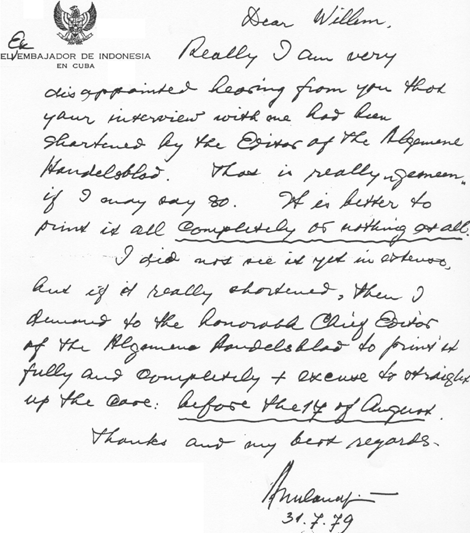 Dear Willem,
Ex
EL EMBAJADOR DE INDONESIA
EN CUBA
Really I am very
disappointed hearing from you that
your interview with me had been
shortened by the Editor of the Algemene
Handelsblad. That is really „gemeen„
if I may say so. It is better to
print it all completely or nothing at all.
I did not see it yet in extenso,
but if it really shortened, then I
demand to the honorable Chief Editor
of the Algemene Handelsblad to print it
fully and completely + excuse to straight
up the case: before the 17 of August.
Thanks and my best regards.
31.7.79